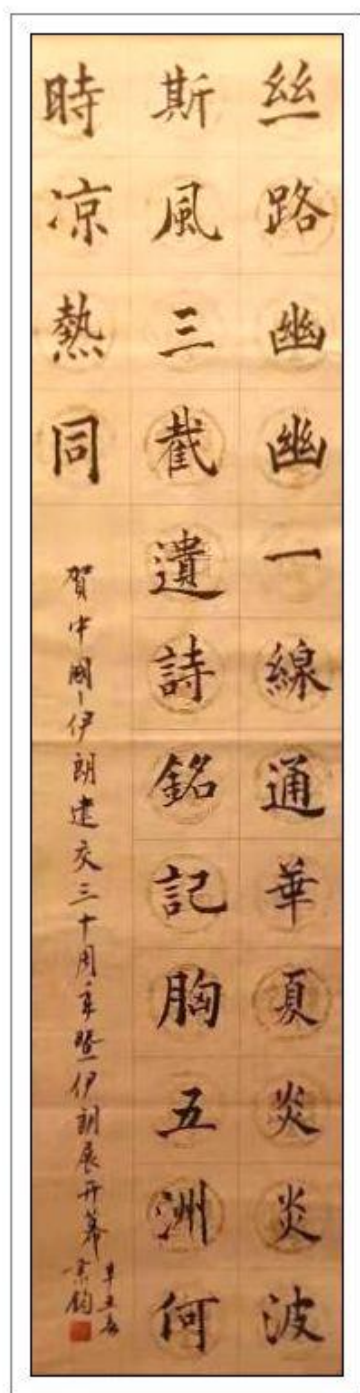 絲路幽幽一線通華夏炎炎波
斯風三截遺詩銘記胸五洲何
時凉熱同
賀中國伊朗建交三十周年暨伊朗展开幕